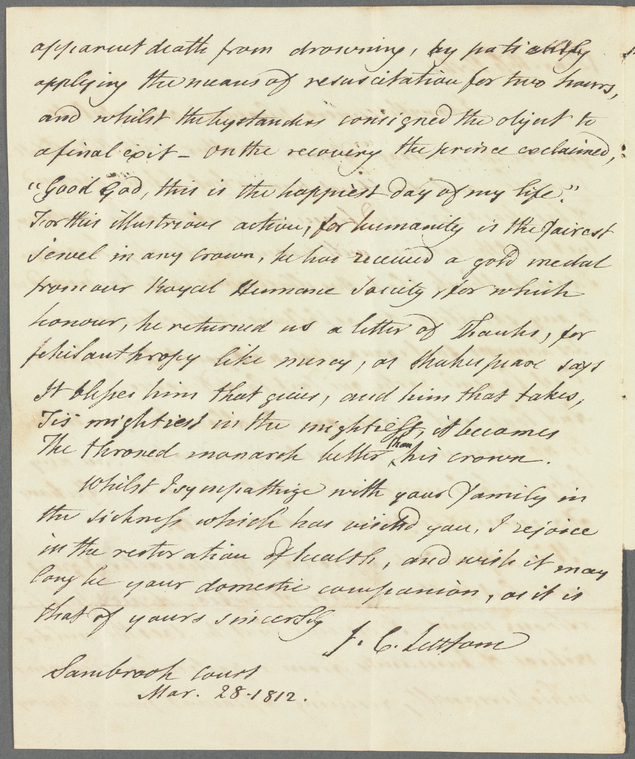 apparent death from drowning, by patiently
applying the means of resuscitation for two hours,
and whilst the bystanders consigned the object to
a final exit – On the recovery the prince exclaimed,
"Good God, this is the happiest day of my life."
For this illustrious action, for humanity is the fairest
jewel in any crown, he has received a gold medal
from our Royal Humane Society, for which
honour, he returned us a letter of Thanks, for
philanthropy like mercy, as Shakespeare says
It blesses him that gives, and him that takes,
Tis mightiest in the mightiest, it becomes
The throned monarch better than his crown.
Whilst I sympathize with your family in
the sickness which has visited you, I rejoice
in the restoration of health, and wish it may
long be your domestic companion, as it is
that of yours sincerely
J. C. Lettsom
Sambrook Court
Mar. 28. 1812.